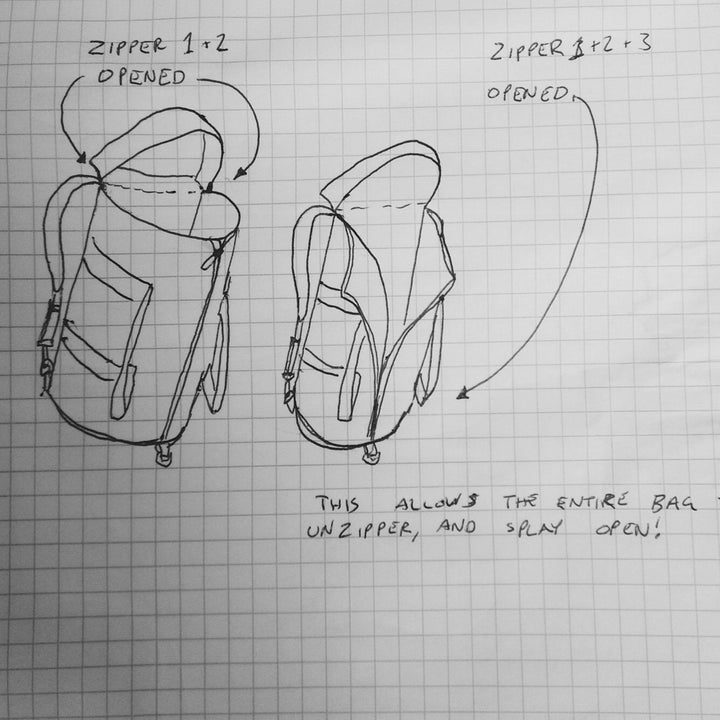 ZIPPER 1+2
OPENED
ZIPPER 1+2+3
OPENED
THIS ALLOWS THE ENTIRE BAG
UNZIPPER, AND SPLAY OPEN!